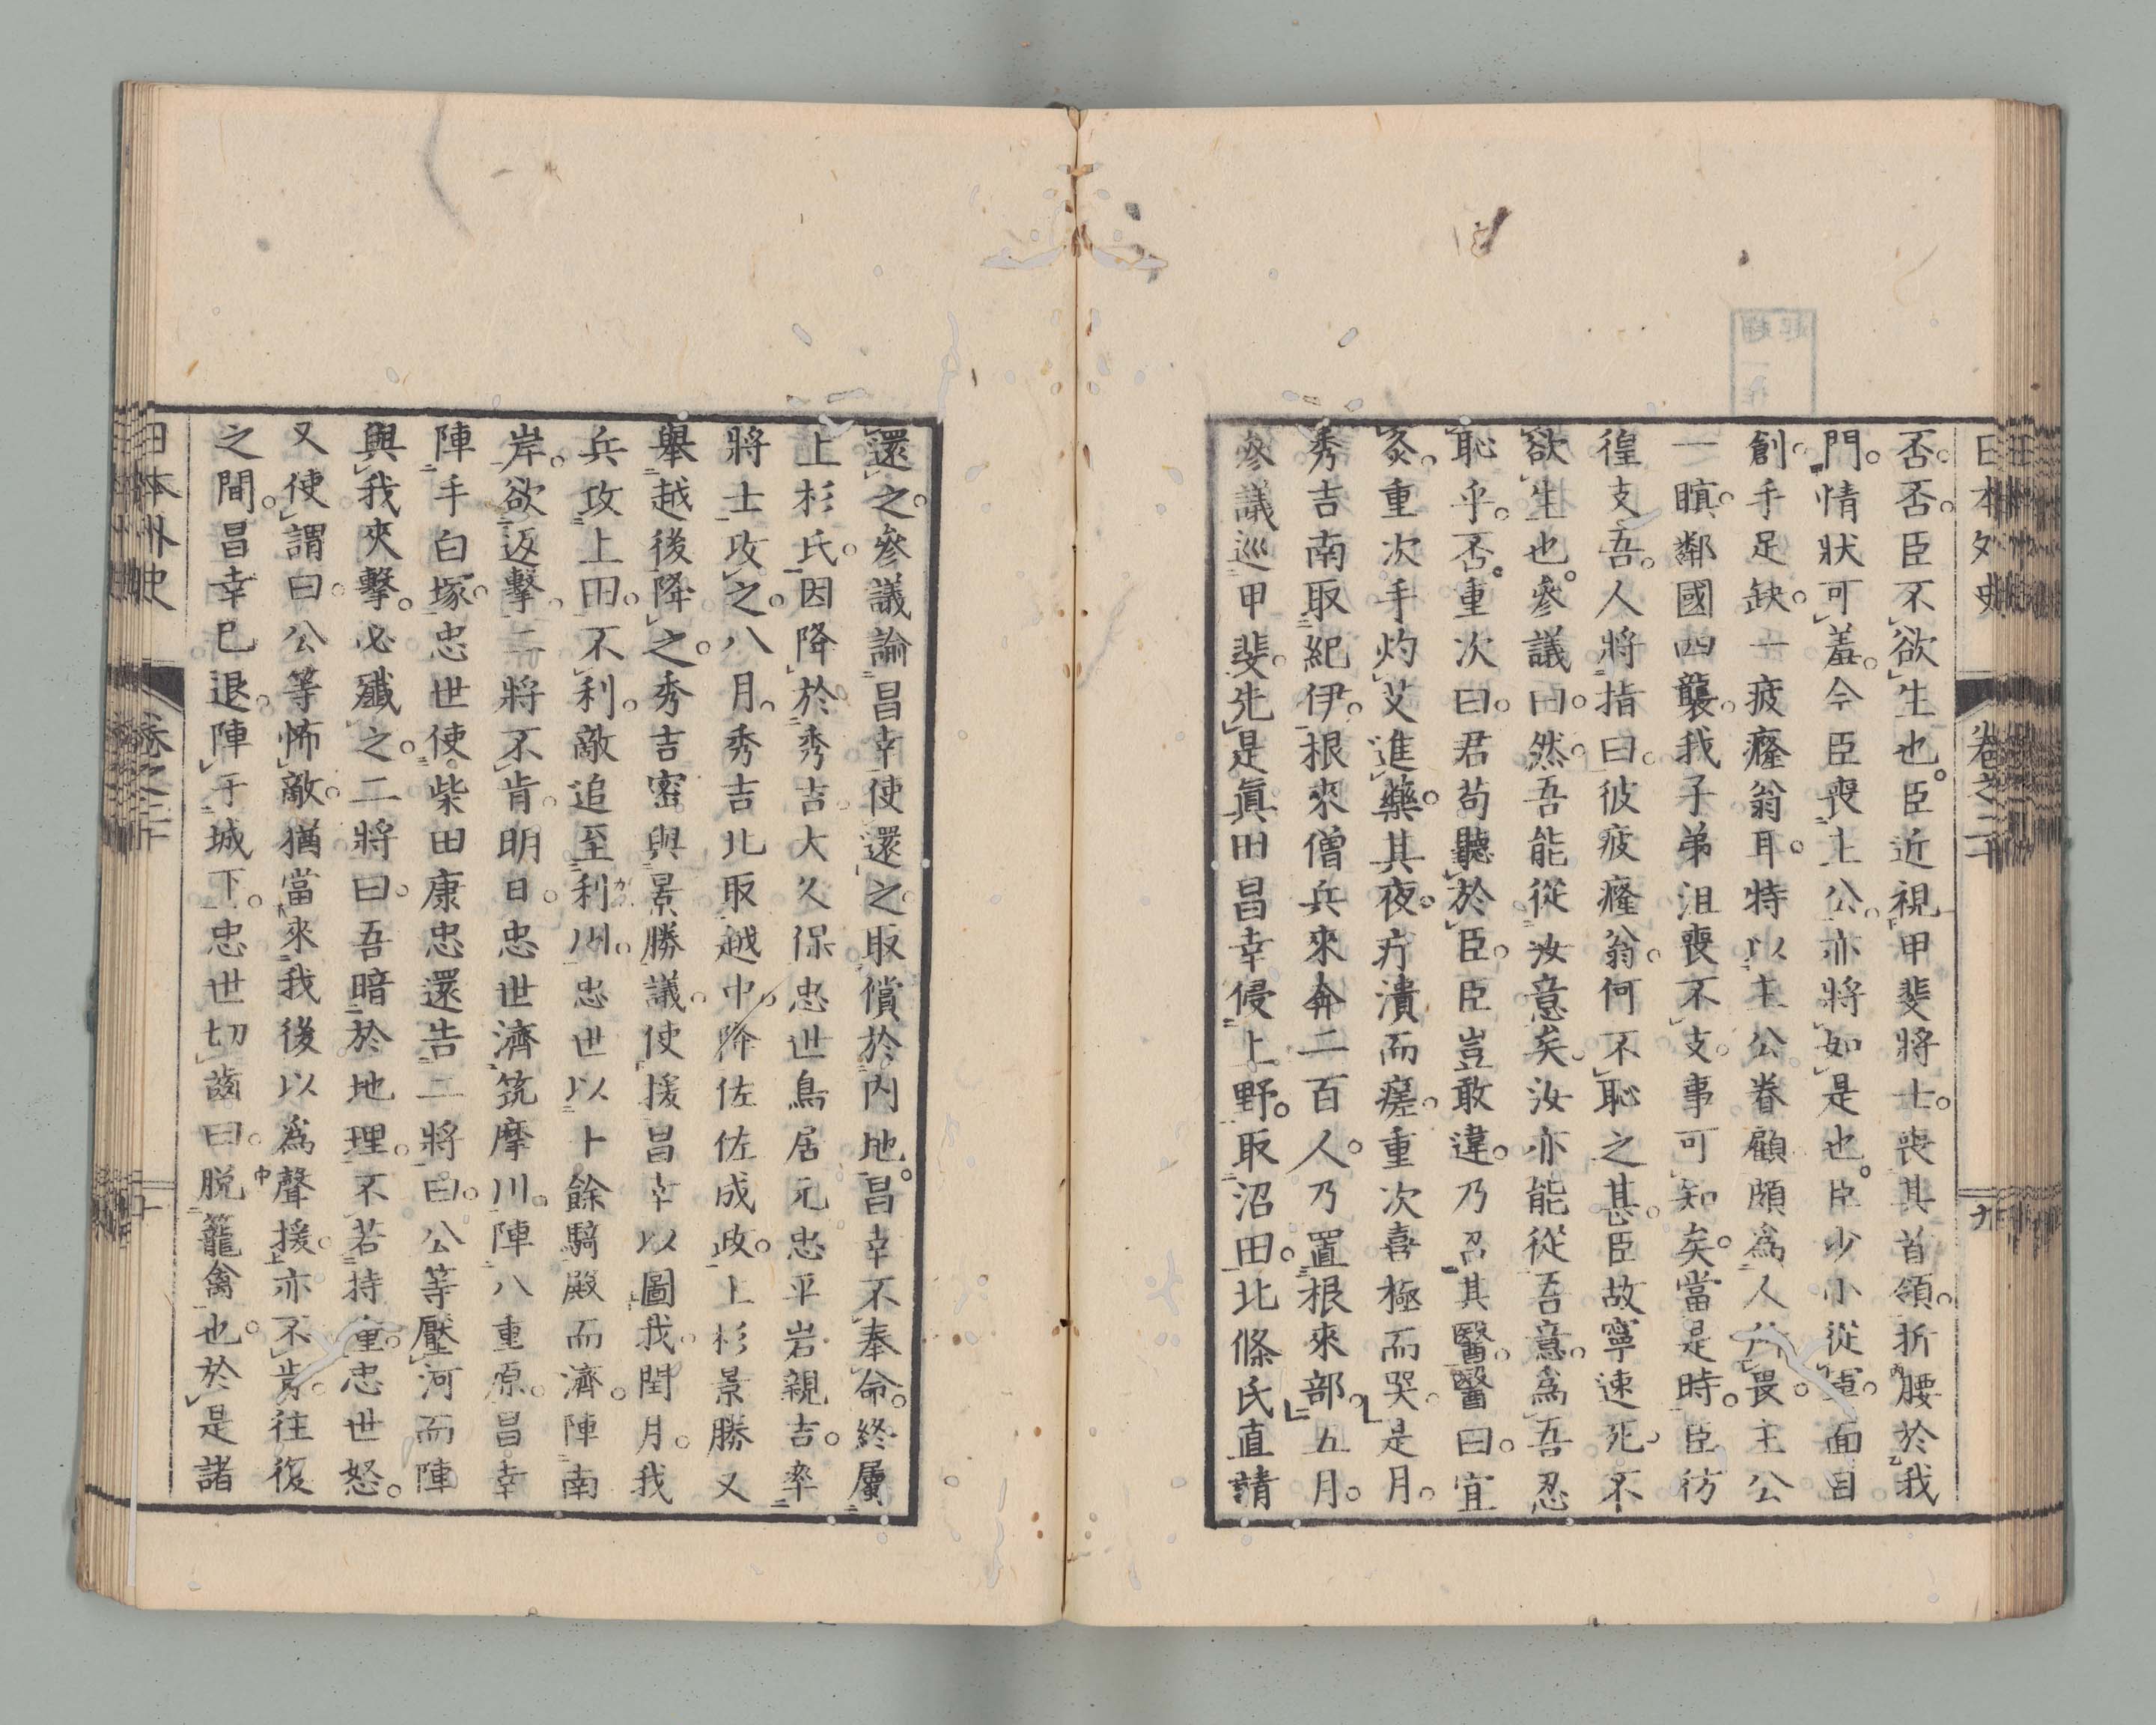 日本外史
卷之二十
九
否。否。臣不欲生也。臣近視甲斐將士。喪其首領。折腰於我
門。情狀可羞。今臣喪上公。亦將如是也。臣少小從軍。面目
創。手足缺。一疲癃翁耳。特以主公眷顧。頗爲人畏。主公
一瞑。鄰國四襲。我子弟沮喪不支。事可知矣。當是時。臣彷
徨支吾。人將指曰。彼疲癃翁。何不恥之甚。臣故寧速死。不
欲生也。參議曰。然。吾能從汝意矣。汝亦能從吾意。爲吾忍
恥乎。否。重次曰。君苟聽於臣。臣豈敢違。乃召其醫。醫曰。宜
灸。重次手灼艾進藥。其夜。疔潰而瘥。重次喜極而哭。是月。
秀吉南取紀伊。根來僧兵來奔二百人。乃置根來部。五月。
參議巡甲斐。先是眞田昌幸侵上野。取沼田。北條氏直請
還之。參議論昌幸使還之。取償於內地。昌幸不奉命。終屬
上杉氏。因降於秀吉。大久保忠世鳥居元忠平岩親吉。率
將士攻之。八月。秀吉北取越中。降佐佐成政。上杉景勝又
舉越後降之。秀吉密與景勝議。使援昌幸以圖我。閏月。我
兵攻上田。不利。敵追至利州。忠世以卜餘騎殿而濟。陣南
岸。欲返擊。二將不肯。明日。忠世濟筑摩川。陣八重原。昌幸
陣手白塚。忠世使柴田康忠還告二將曰。公等壓河而陣
與我夾擊。必殲之。二將曰。吾暗於地理。不若持重。忠世怒。
又使謂曰。公等怖敵。猶當來我後以爲聲援。亦不肯。往復
之間。昌幸已退。陣于城下。忠世切齒曰。脫籠禽也。於是諸
日本外史
卷之二十
十